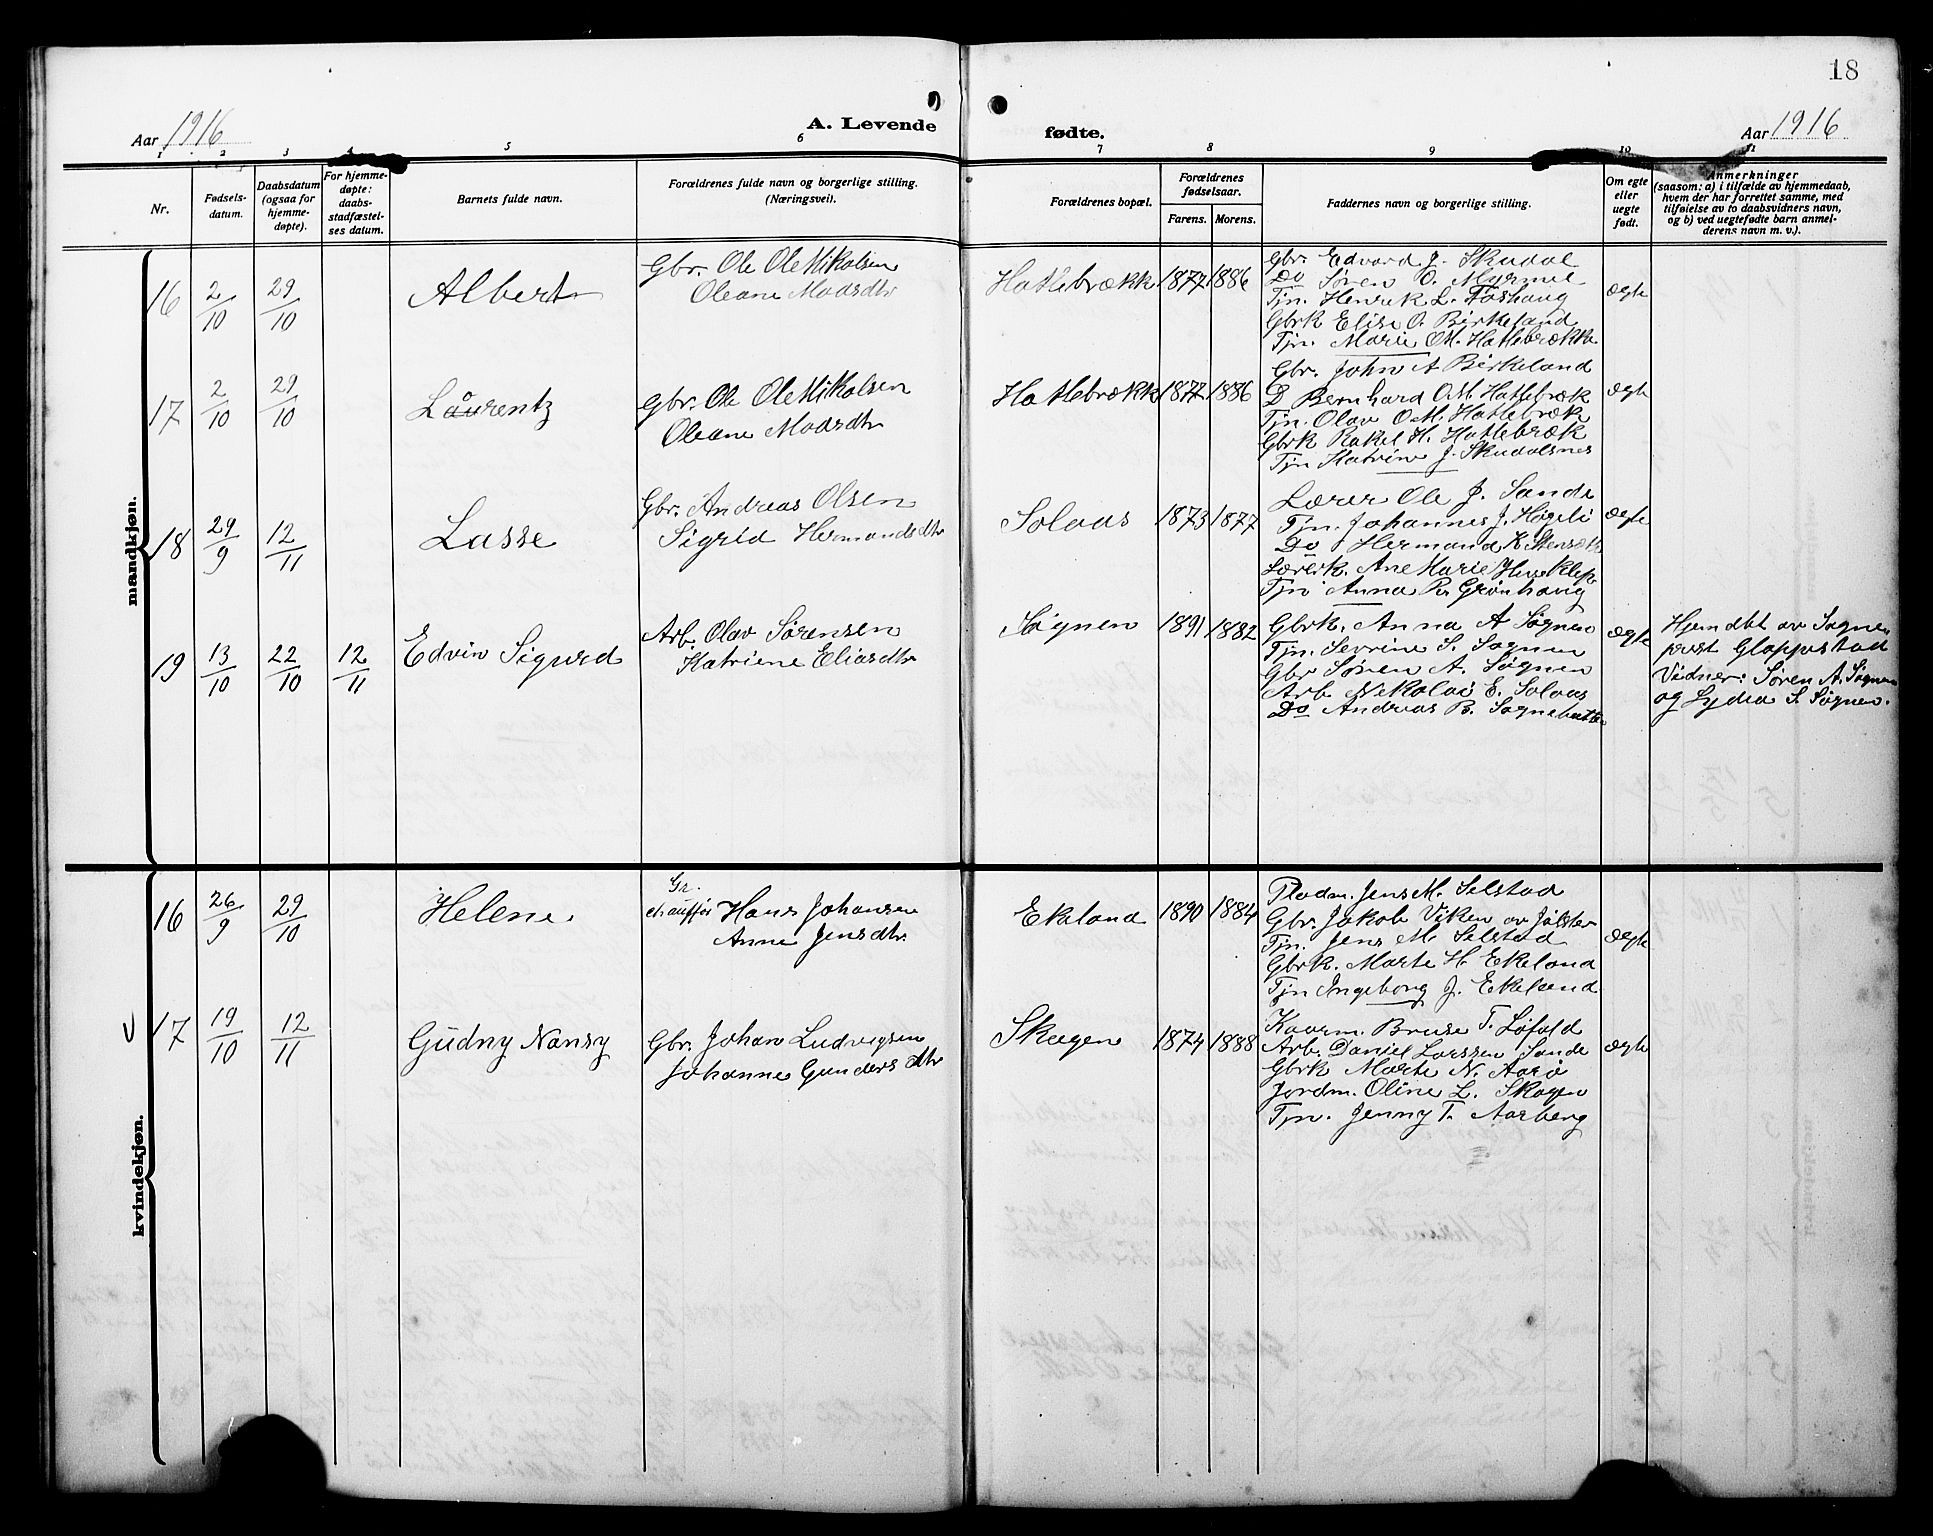 18
Aar 1916
A. Levende
fødte.
Aar 1916
1 2 3 4 5 6 7 8 9 10 11
Nr.
Fødsels-
datum.
Daabsdatum
(ogsaa for
hjemme-
døpte).
For hjemme-
døpte:
daabs-
stadfæstel-
ses datum.
Barnets fulde navn.
Forældrenes fulde navn og borgerlige stilling.
(Næringsvei).
Forældrenes bopæl.
Forældrenes
fødselsaar.
Farens. Morens.
Faddernes navn og borgerlige stilling.
Om egte
eller
uegte
født.
Anmerkninger
(saasom: a) i tilfælde av hjemmedaab,
hvem der har forrettet samme, med
tilføielse av to daabsvidners navn,
og b) ved uegtefødte barn anmel-
derens navn m. v.).
mandkjøn.
16
2/10
29/10
Albert
Gbr. Ole Ole Mikalsen
Oleane Madsdtr
Hatlebrækk
1877 1886
Gbr. Edvard J. Skudal
Do Søren O. Myrmel
Tjn. Henrik L. Foshaug
Gbrk Elise O. Birkeland
Tjn. Marie O.M. Hatlebrækk
ægte
17
2/10
29/10
Laurentz
Gbr. Ole Ole Mikalsen
Oleane Madsdtr
Hatlebrækk
1877 1886
Gbr. John A Birkeland
D Bernhard O.M. Hatlebræk
Tjn. Olav O.M. Hatlebræk
Gbrk Rakel H. Hatlebræk
Tjn Katrine J. Skudalsnes
ægte
18
29/9
12/11
Lasse
Gbr. Andreas Olsen
Sigrid Hermandsdtr
Solaas
1873 1877
Lærer Ole J. Sande
Tjn. Johannes J. Høgeli
Do Hermand K
Lærerk. Ane Marie Klep
Tjn Anna Grønhaug
ægte
19
13/10
22/10
12/11
Edvin Sigurd
Arb. Olav Sørensen
Katriene Eliasdtr
Søgnen
1891 1882
Gbrk. Anna A Søgnen
Tjn. Sevrine S. Søgnen
Gbr Søren A. Søgnen
Arb. Nikolai E. Solaas
Do Andreas B.
ægte
Hjemdbt av Sogne-
prest Gloppestad
Vidner: Søren A. Søgnen
og Lydia S. Søgnen.
kvindekjøn.
16
26/9
29/10
Helene
Gr.
chauffør Hans Johansen
Anne Jensdtr.
Ekeland
1890 1884
Pladm. Jens M. Selstad
Gbr. Jakob Viken av Jølster
Tjn. Jens M. Selstad
Gbrk. Marte H. Ekeland
Tjn Ingeborg J. Ekeland
ægte
17
19/10
12/11
Gudny Nansy
Gbr. Johan Ludvigsen
Johanne Gundersdtr
Skagen
1874 1888
Kaarm. Bruse T. Løfald
Arb. Daniel Larssen Sande
Gbrk Marte N. Aarø
Jordm. Oline L. Skagen
Tjn. Jenny T. Aarberg
ægte